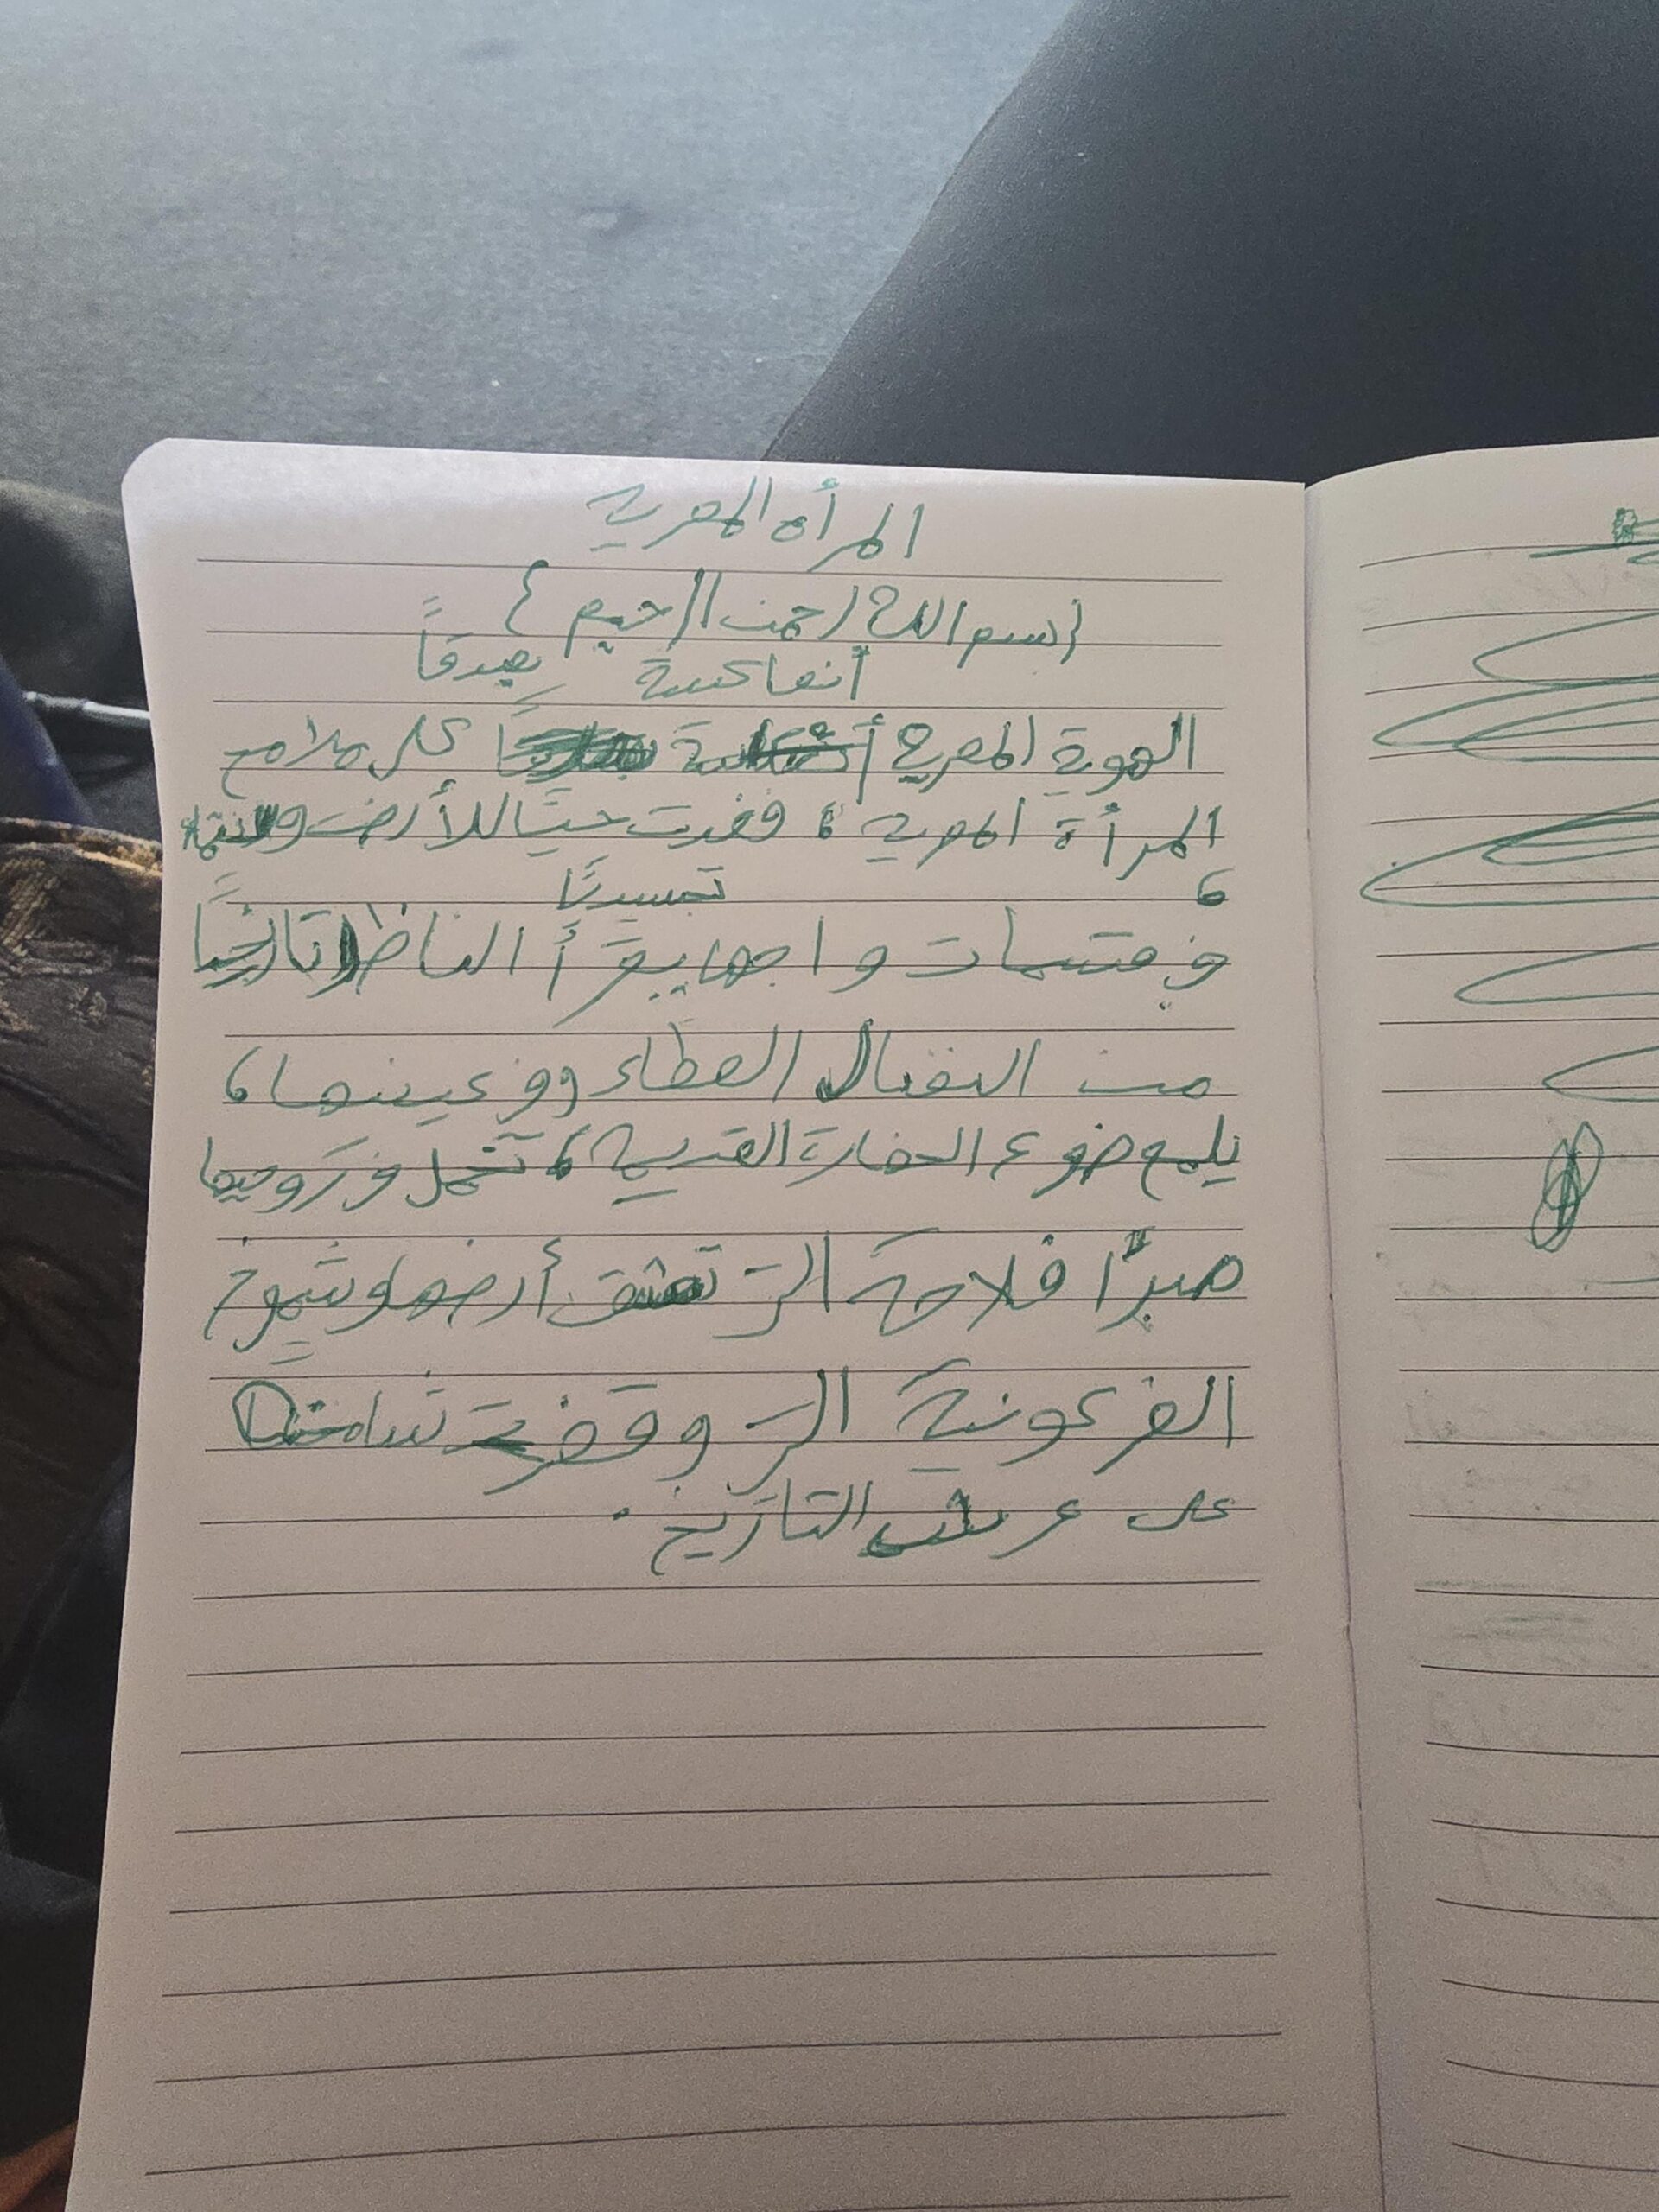 المرأه المصريه
{بسم الله الرحمن الرحيم}
أنعاكسة صدقاً
الهوية المصرية على ملامح
المرأة المصريه، فغدت حيًا للأرض والانتماء
، تجسيدًا
في قسمات واجهها يقرأ الناظر تاريخًا
من النضال العطاء وفي عينها،
يلمع ضوء الحضارة القديمة، تحمل في روحها
صبرًا فلاحة التي تعشق أرضها وشموخ
الفرعونية التي وقفت شامخة
على عرش التاريخ.